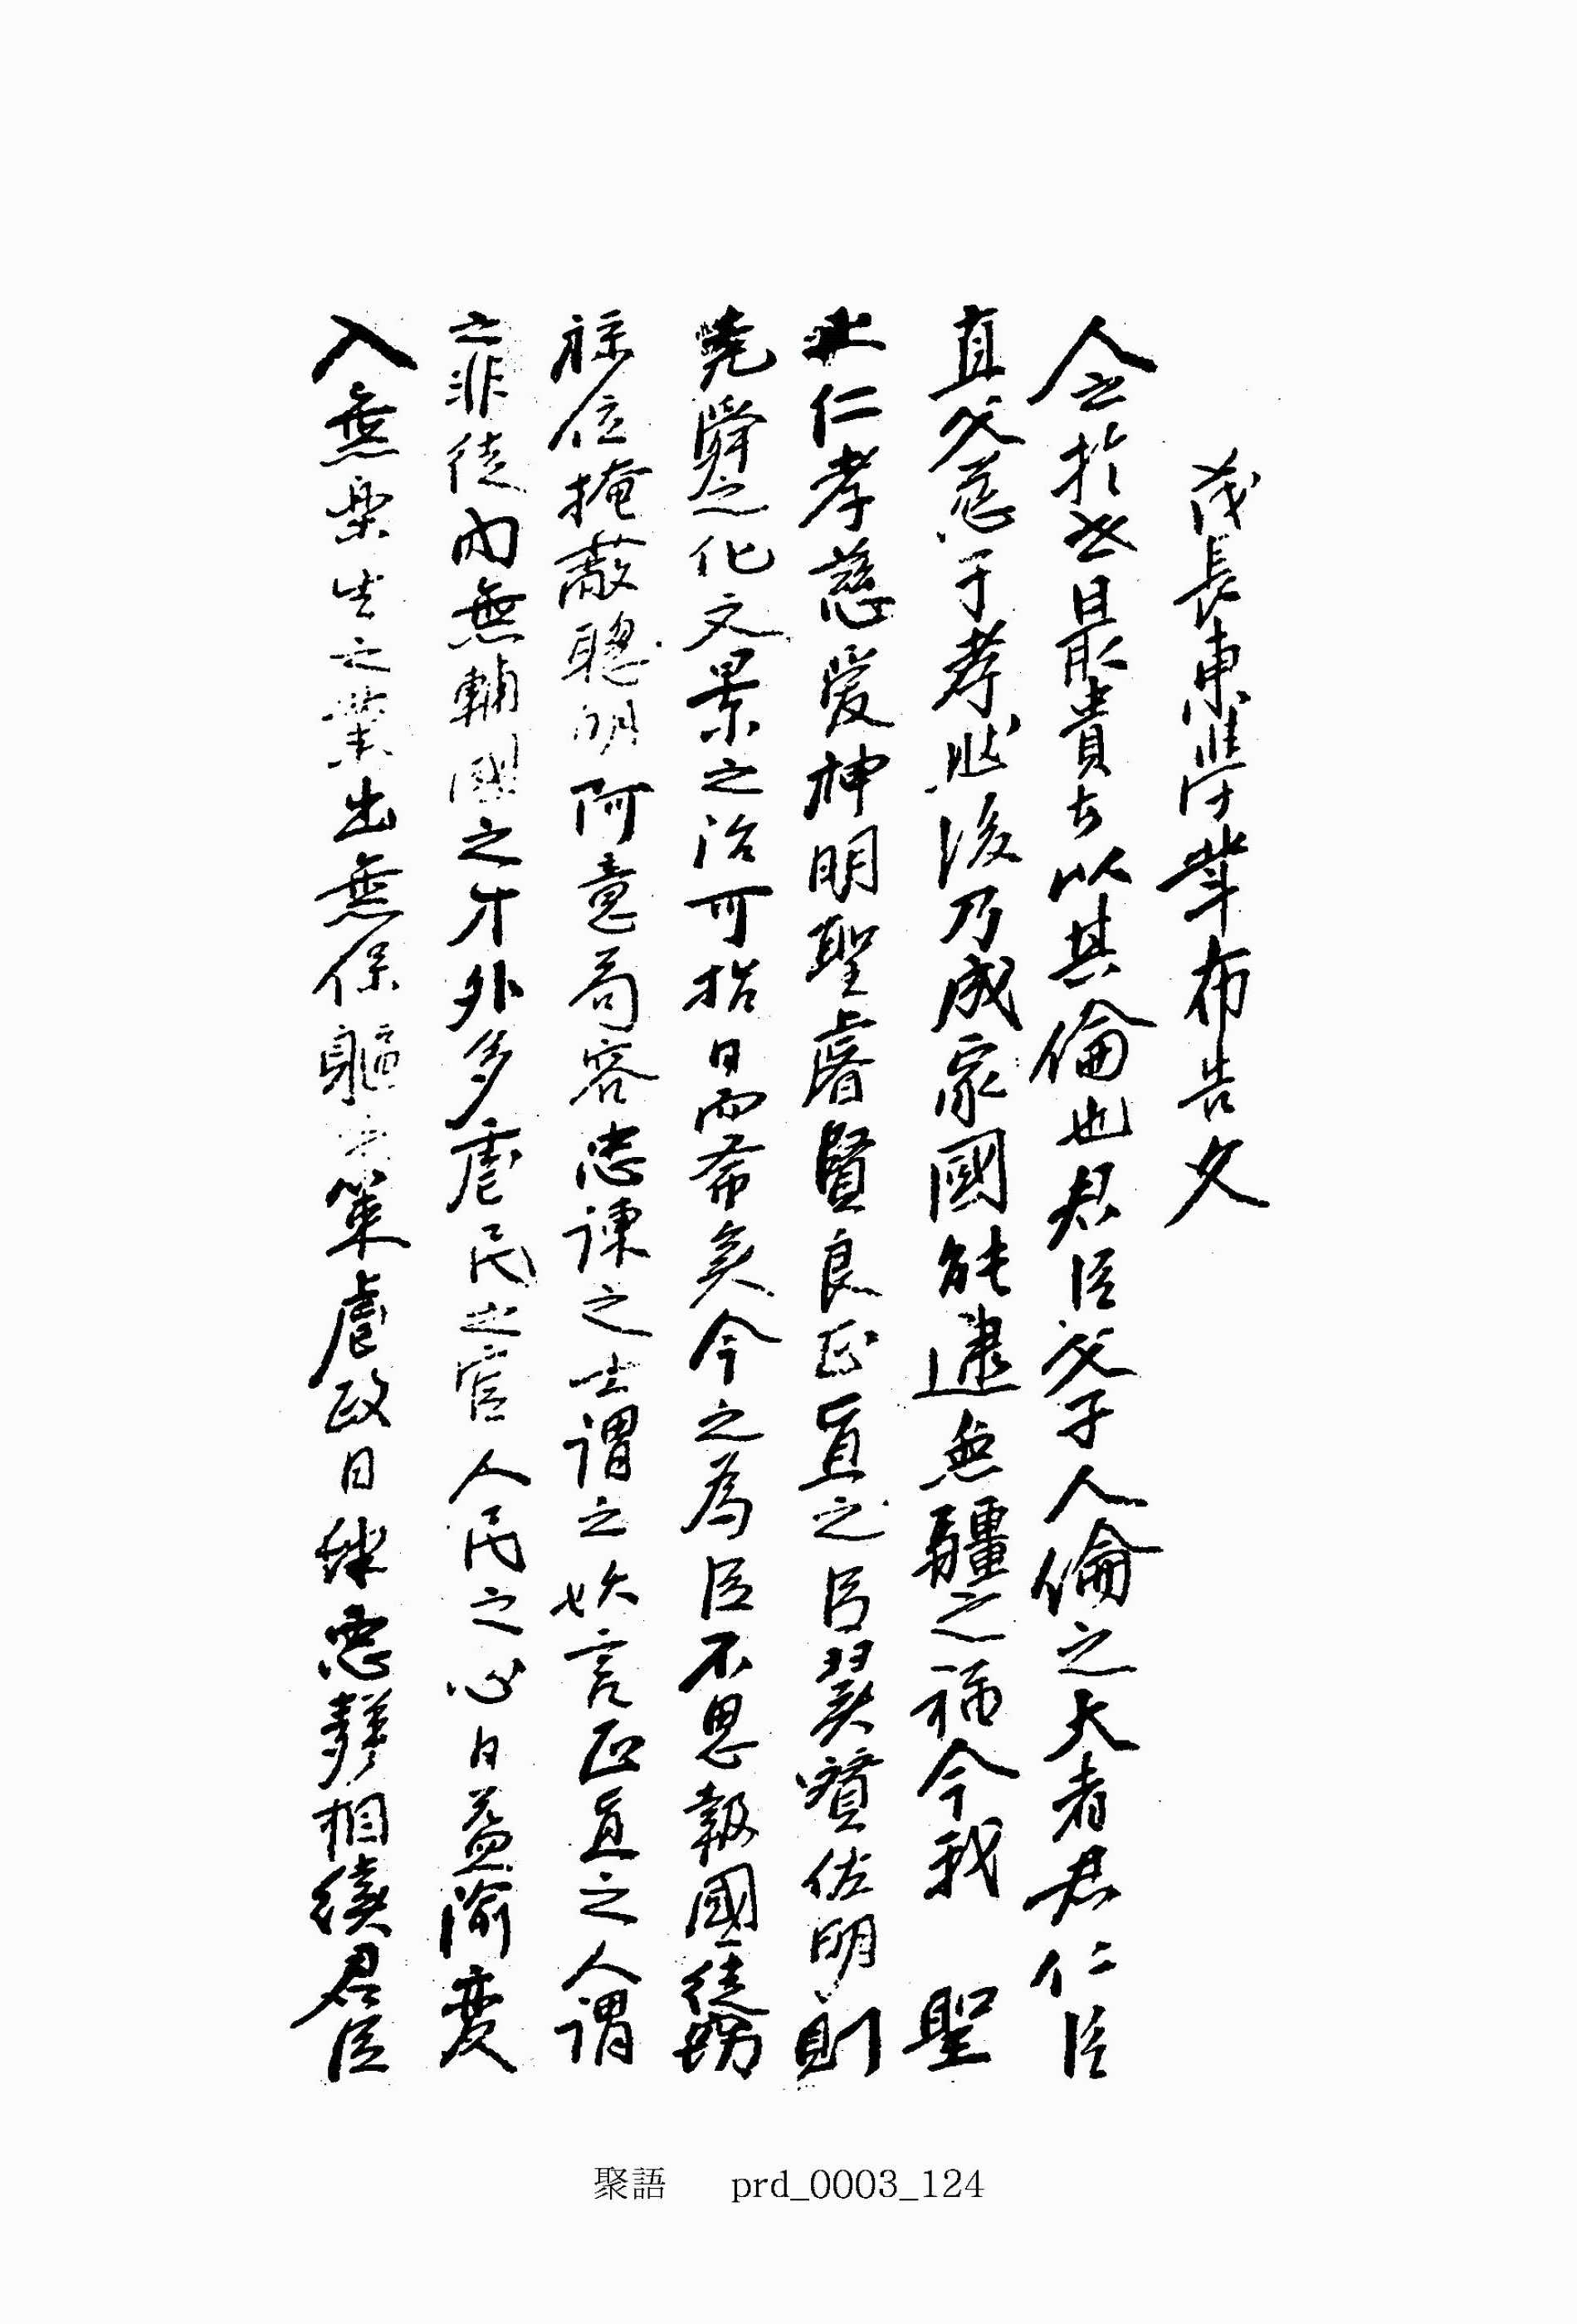 茂長東學輩布告文
人之於世最貴者以其倫也君臣父子人倫之大者君仁臣
直父慈子孝然後乃成家國能逮無疆之福今我 聖
上仁孝慈愛神明聖睿賢良正直之臣翼贊佐明則
堯舜之化文景之治可指日而希矣今之爲臣不思報國徒竊
祿位掩蔽聰明阿意苟容忠諫之士謂之妖言正直之人謂
之非徒內無輔國之才外多虐民之官人民之心日益渝変
入無樂生之業出無保軀之策虐政日肆惡聲相續君臣
聚語 prd_0003_124